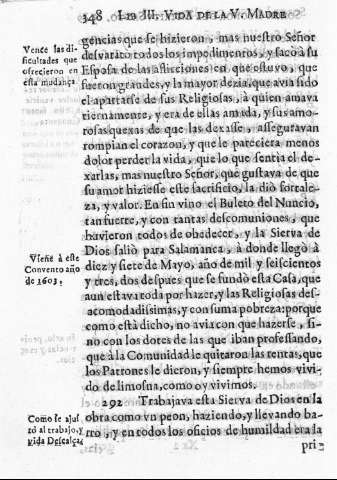 348 LIB III. VIDA DE LA V. MADRE
Vence las di-
ficultades que
ofrecieron en
esta mudança.
gencias que se hizieron, mas nuestro Señor
desvarató todos los impedimentos, y sacò a su
Esposa de las aflicciones en que estuvo, que
fueron grandes, y la mayor dezia, que avia sido
el apartarse de sus Religiosas, à quien amava
tiernamente, y era de ellas amada, y sus amo-
rosas quexas de que las dexasse, assegutavan
rompian el corazon, y que le pareciera menos
dolor perder la vida, que lo que sentia el de-
xarlas, mas nuestro Señor, que gustava de que
su amor hiziesse este sacrificio, la diò fortale-
za, y valor. En fin vino el Buleto del Nuncio,
tan fuerte, y con tantas descomuniones, que
huvieron todos de obedecer, y la Sierva de
Dios saliò para Salamanca, à donde llegò à
diez y siete de Mayo, año de mil y seiscientos
y tres, dos despues que se fundò esta Casa, que
aun estava toda por hazer, y las Religiosas des-
acomodadissimas, y con suma pobreza: porque
como està dicho, no avia con que hazerse, si-
no con los dotes de las que iban professando,
que à la Comunidad le quitaron las rentas, que
los Patrones le dieron, y siempre hemos vivi-
do de limosna, como oy vivimos.
Vienè à este
Convento año
de 1603.
292 Trabajava esta Sierva de Dios en la
obra como vn peon, haziendo, y llevando ba-
rro, y en todos los oficios de humildad era la
Como se ajus
tó al trabajo, y
vida Descalça,
pri-